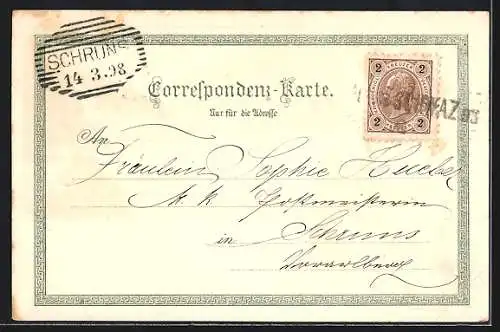 SCHRUNS
14.3.98
2 KREUZER 2
2 2
Correspondenz-Karte.
Nur für die Adresse
An
Fräulein Sophie
k. k. Postmeisterin
in
Schruns
Vorarlberg